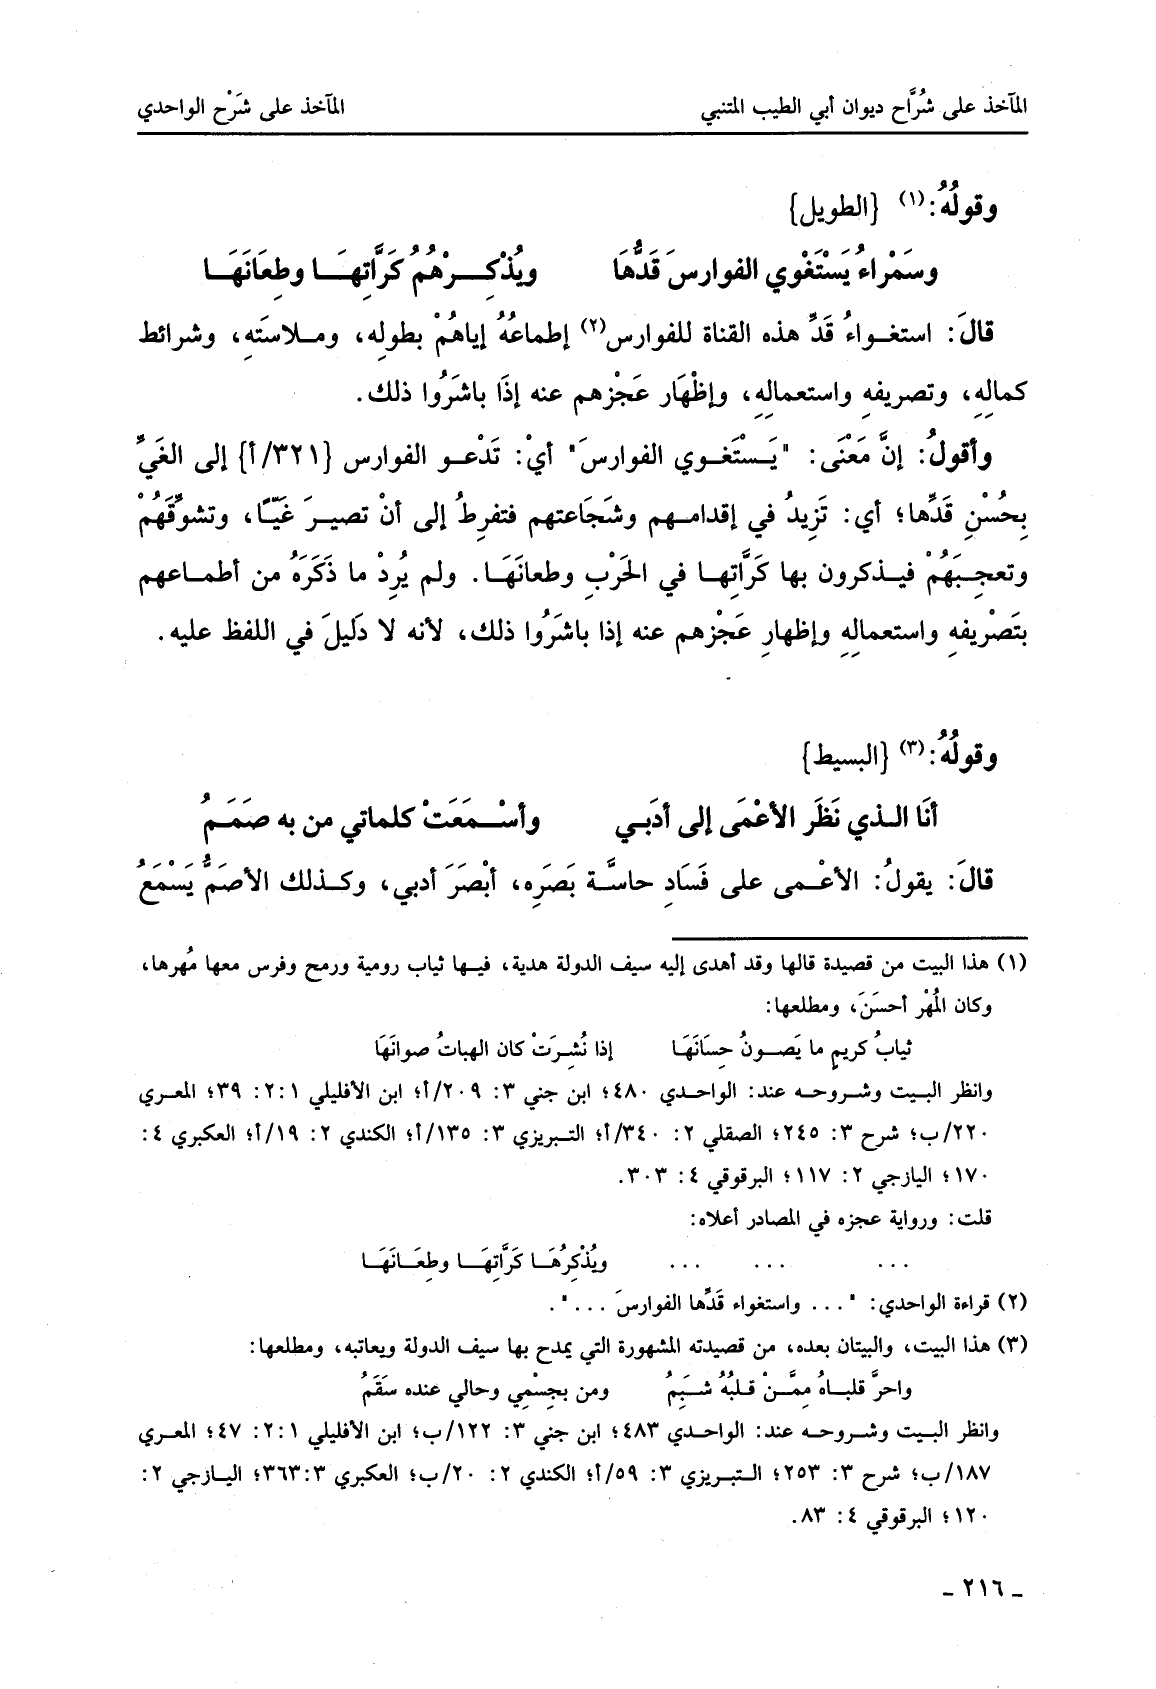 المآخذ على شُرَّاح ديوان أبي الطيب المتنبي المآخذ على شَرْح الواحدي
وقولُهُ:(١) {الطويل}
وسَمْراءُ يَسْتَغْوي الفوارسَ قَدُّهَا ويُذْكِرْهُمُ كَرَّاتِهَا وطِعَانَهَا
قالَ: استغواءُ قَدِّ هذه القناة للفوارس(٢) إطماعُهُ إياهُمْ بطولِه، وملاستَهِ، وشرائط
كمالِهِ، وتصريفهِ واستعمالِهِ، وإظْهَار عَجْزِهم عنه إذَا باشَرُوا ذلك.
وأقولُ: إنَّ مَعْنَى: "يَسْتَغوي الفوارسَ" أيْ: تَدْعو الفوارس {٣٢١/أ} إلى الغَيِّ
بِحُسْنِ قَدِّها؛ أي: تَزِيدُ في إقدامهم وشَجَاعتهم فتفرِطُ إلى أنْ تصيرَ غَيًّا، وتشوِّقَهُمْ
وتعجبَهُمْ فيذكرون بها كَرَّاتها في الحَرْبِ وطعانَهَا. ولم يُرِدْ ما ذَكَرَهُ من أطماعهم
بتَصْريفهِ واستعمالِهِ وإظهارِ عَجْزِهم عنه إذا باشَرُوا ذلك، لأنه لا دَلِيلَ في اللفظ عليه.
وقولُهُ:(٣) {البسيط}
أنَا الذي نَظَرَ الأعْمَى إلى أدَبي وأسْمَعَتْ كلماتي من به صَمَمُ
قالَ: يقولُ: الأعْمى على فَسَادِ حاسَّة بَصَرِه، أبْصَرَ أدبي، وكذلك الأصَمُّ يَسْمَعُ
(١) هذا البيت من قصيدة قالها وقد أهدى إليه سيف الدولة هدية، فيها ثياب رومية ورمح وفرس معها مُهرها،
وكان المُهْر أحسَنَ، ومطلعها:
ثيابُ كريمٍ ما يَصونُ حِسَانَهَا إذا نُشِرَتْ كان الهباتُ صوانَهَا
وانظر البيت وشروحه عند: الواحدي ٤٨٠؛ ابن جني ٣: ٢٠٩/أ؛ ابن الأفليلي ٢:١: ٣٩؛ المعري
٢٢٠/ب؛ شرح ٣: ٢٤٥؛ الصقلي ٢: ٣٤٠/أ؛ التبريزي ٣: ١٣٥/أ؛ الكندي ٢: ١٩/أ؛ العكبري ٤:
١٧٠؛ اليازجي ٢: ١١٧؛ البرقوقي ٤: ٣٠٣.
قلت: ورواية عجزه في المصادر أعلاه:
... ... ... ويُذْكِرُهَا كَرَّاتِهَا وطِعَانَهَا
(٢) قراءة الواحدي: "... واستغواء قَدِّها الفوارسَ ...".
(٣) هذا البيت، والبيتان بعده، من قصيدته المشهورة التي يمدح بها سيف الدولة ويعاتبه، ومطلعها:
واحرَّ قلباهُ ممَّنْ قلبُهُ شبَمُ ومن بجسْمي وحالي عنده سَقَمُ
وانظر البيت وشروحه عند: الواحدي ٤٨٣؛ ابن جني ٣: ١٢٢/ب؛ ابن الأفليلي ٢:١: ٤٧؛ المعري
١٨٧/ب؛ شرح ٣: ٢٥٣؛ التبريزي ٣: ٥٩/أ؛ الكندي ٢: ٢٠/ب؛ العكبري ٣٦٣:٣؛ اليازجي ٢:
١٢٠؛ البرقوقي ٤: ٨٣.
ـ ٢١٦ ـ